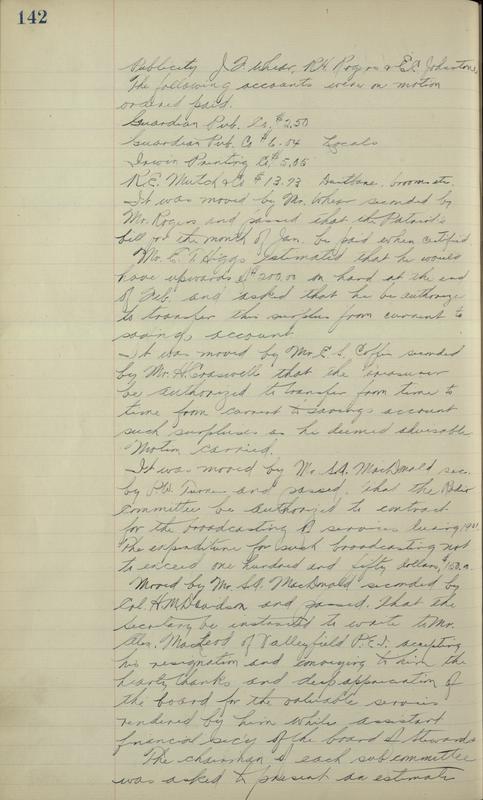 142
Publicity J. A. Whear, R.H. Rogers & E.C. Johnstone
The following accounts were on motion
ordered paid.
Guardian Pub. Co. $2.50
Guardian Pub. Co $6.04 Locals
Irwin Printing Co. $5.05
R.E. Mutch & Co $13.93 Dustbane, brooms etc.
It was moved by Mr. Whear seconded by
Mr. Rogers and passed that the Patriots
bill for the month of Jan. be paid when certified
Mr. E. T. Higgs estimated that he would
have upwards of $200.00 on hand at the end
of Feb. and asked that he be authorize
to transfer this surplus from current to
savings account.
It was moved by Mr. E. S. Coffin seconded
by Mr. H. Crasswell that the Treasurer
be authorized to transfer from time to
time from current to savings account
such surpluses as he deemed advisable
Motion carried.
It was moved by Mr. MacDonald sec.
by and passed. That the Radio
Committee be authorized to contract
for the broadcasting of services during
The expenditure for such broadcasting not
to exceed one hundred and fifty dollars, $150.00
Moved by Mr. MacDonald seconded by
Col. H.M. Davidson and passed. That the
Secretary be instructed to write to Mr.
MacLeod of Valleyfield P.E.I. accepting
his resignation and conveying to him the
hearty thanks and deep appreciation of
the board for the valuable services
rendered by him while assistant
financial sec'y of the board of Stewards
The chairman of each sub committee
was asked to present an estimate